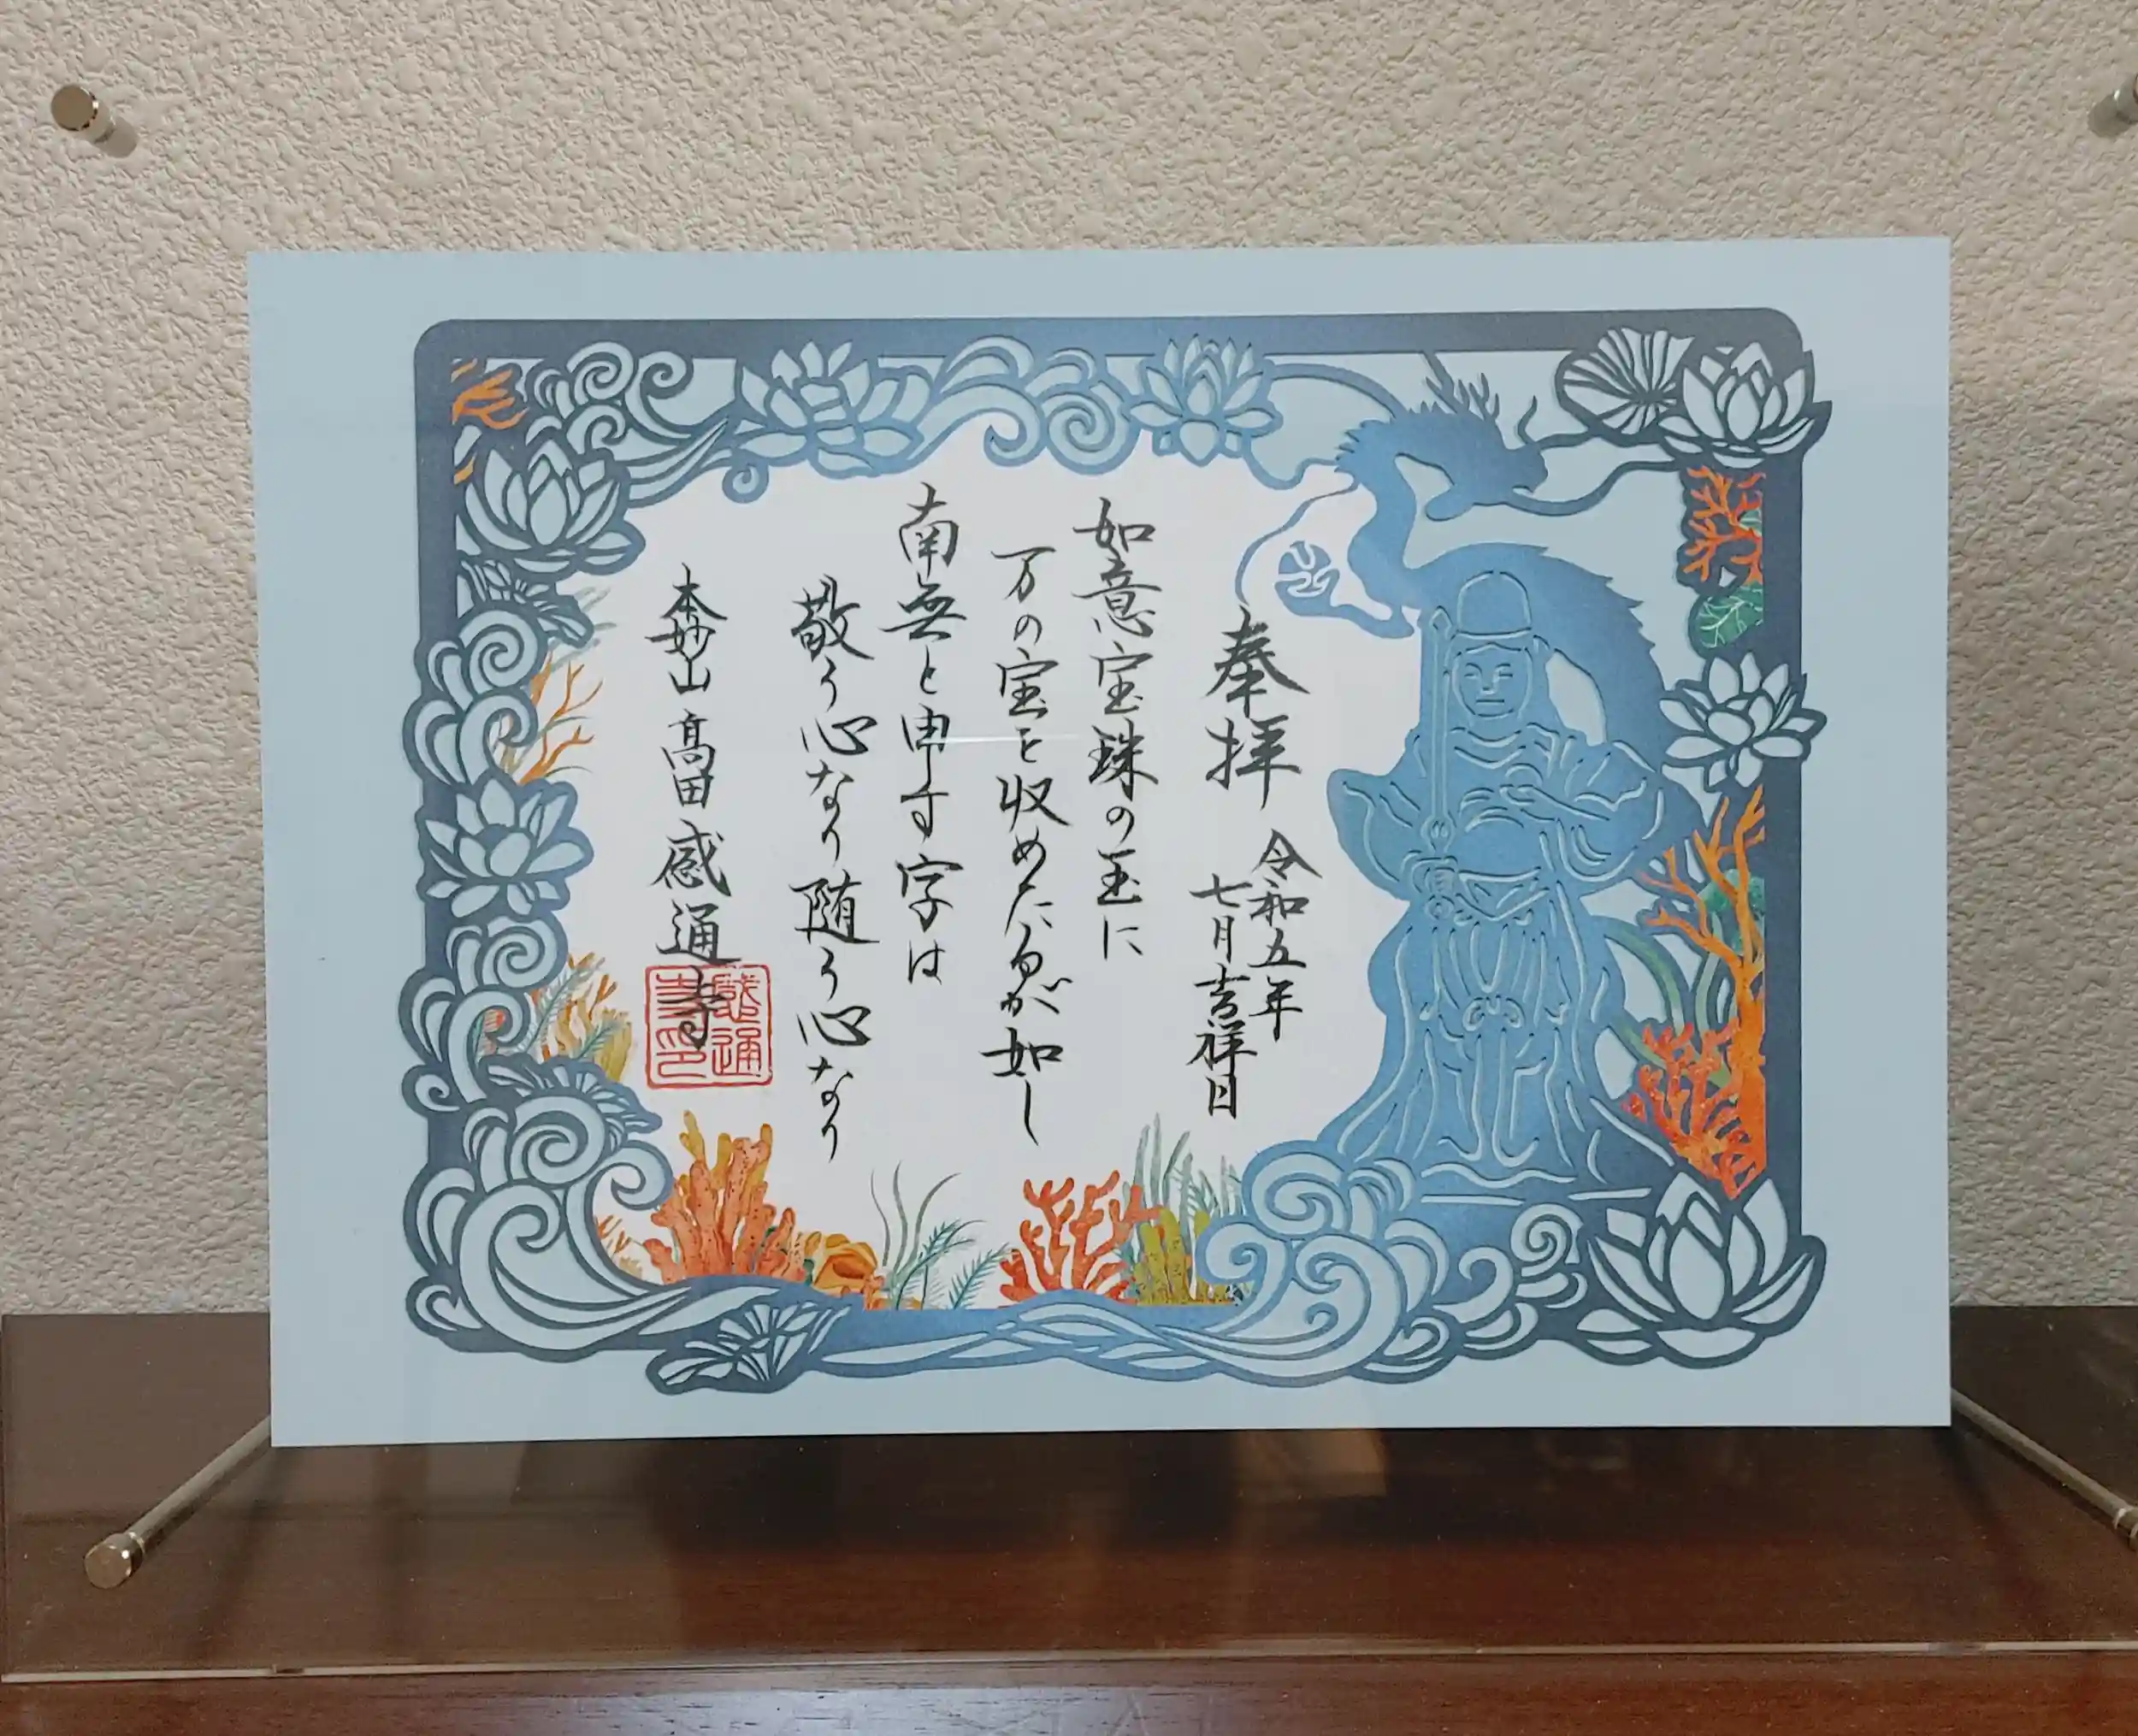 奉拝
令和五年
七月吉祥日
如意宝珠の玉に
万の宝を収めたるが如し
南無と申す字は
敬う心なり随う心なり
本妙山 髙田 感通寺
感通
寺印